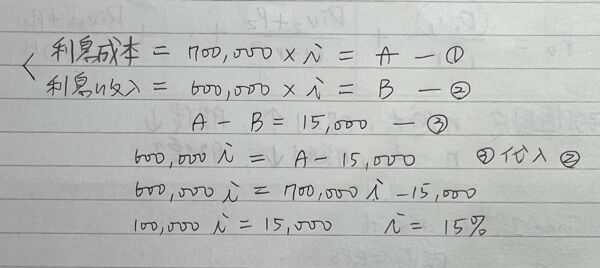 利息成本 = 700,000 × i = A — ①
利息收入 = 600,000 × i = B — ②
A - B = 15,000 — ③
600,000 i = A - 15,000 ③代入②
600,000 i = 700,000 i - 15,000
100,000 i = 15,000 i = 15%